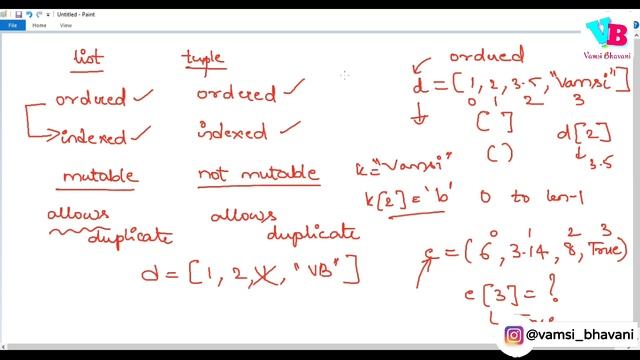 Untitled - Paint
File
Home
View
VB
Vamsi Bhavani
list
tuple
ordered ✓
ordered ✓
indexed ✓
indexed ✓
mutable
not mutable
allows
duplicate
allows
duplicate
d = [1, 2, X, "VB"]
ordered
d = [1, 2, 3.5, "Vamsi"]
0 1 2 3
[ ]
( )
d[2]
3.5
k = "Vamsi"
k[2] = 'b'
0 to len-1
0 1 2 3
e = (6, 3.14, 8, True)
e[3] = ?
@vamsi_bhavani